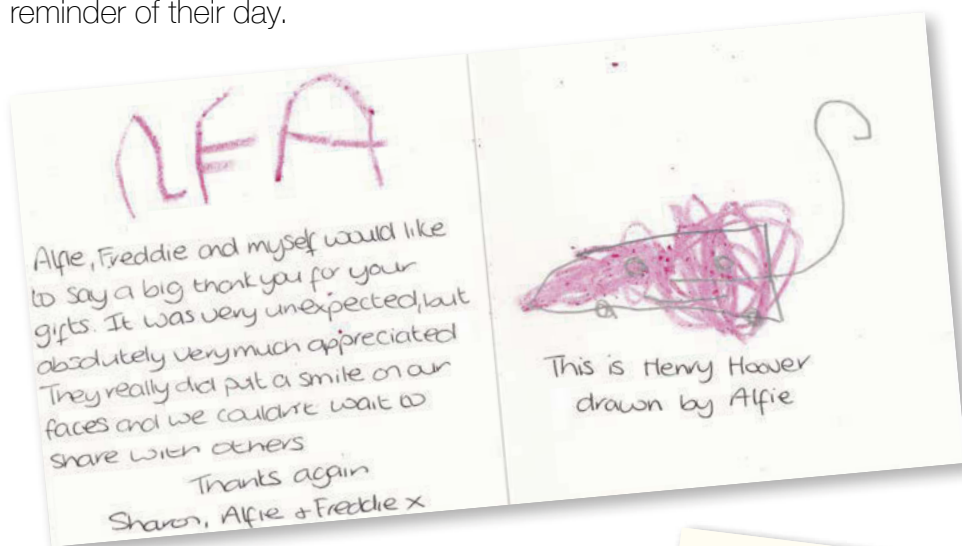 reminder of their day.
Alfie, Freddie and myself would like
to say a big thankyou for your
gifts. It was very unexpected, but
absolutely very much appreciated
They really did put a smile on our
faces and we couldn't wait to
share with others
Thanks again
Sharon, Alfie + Freddie x
This is Henry Hoover
drawn by Alfie